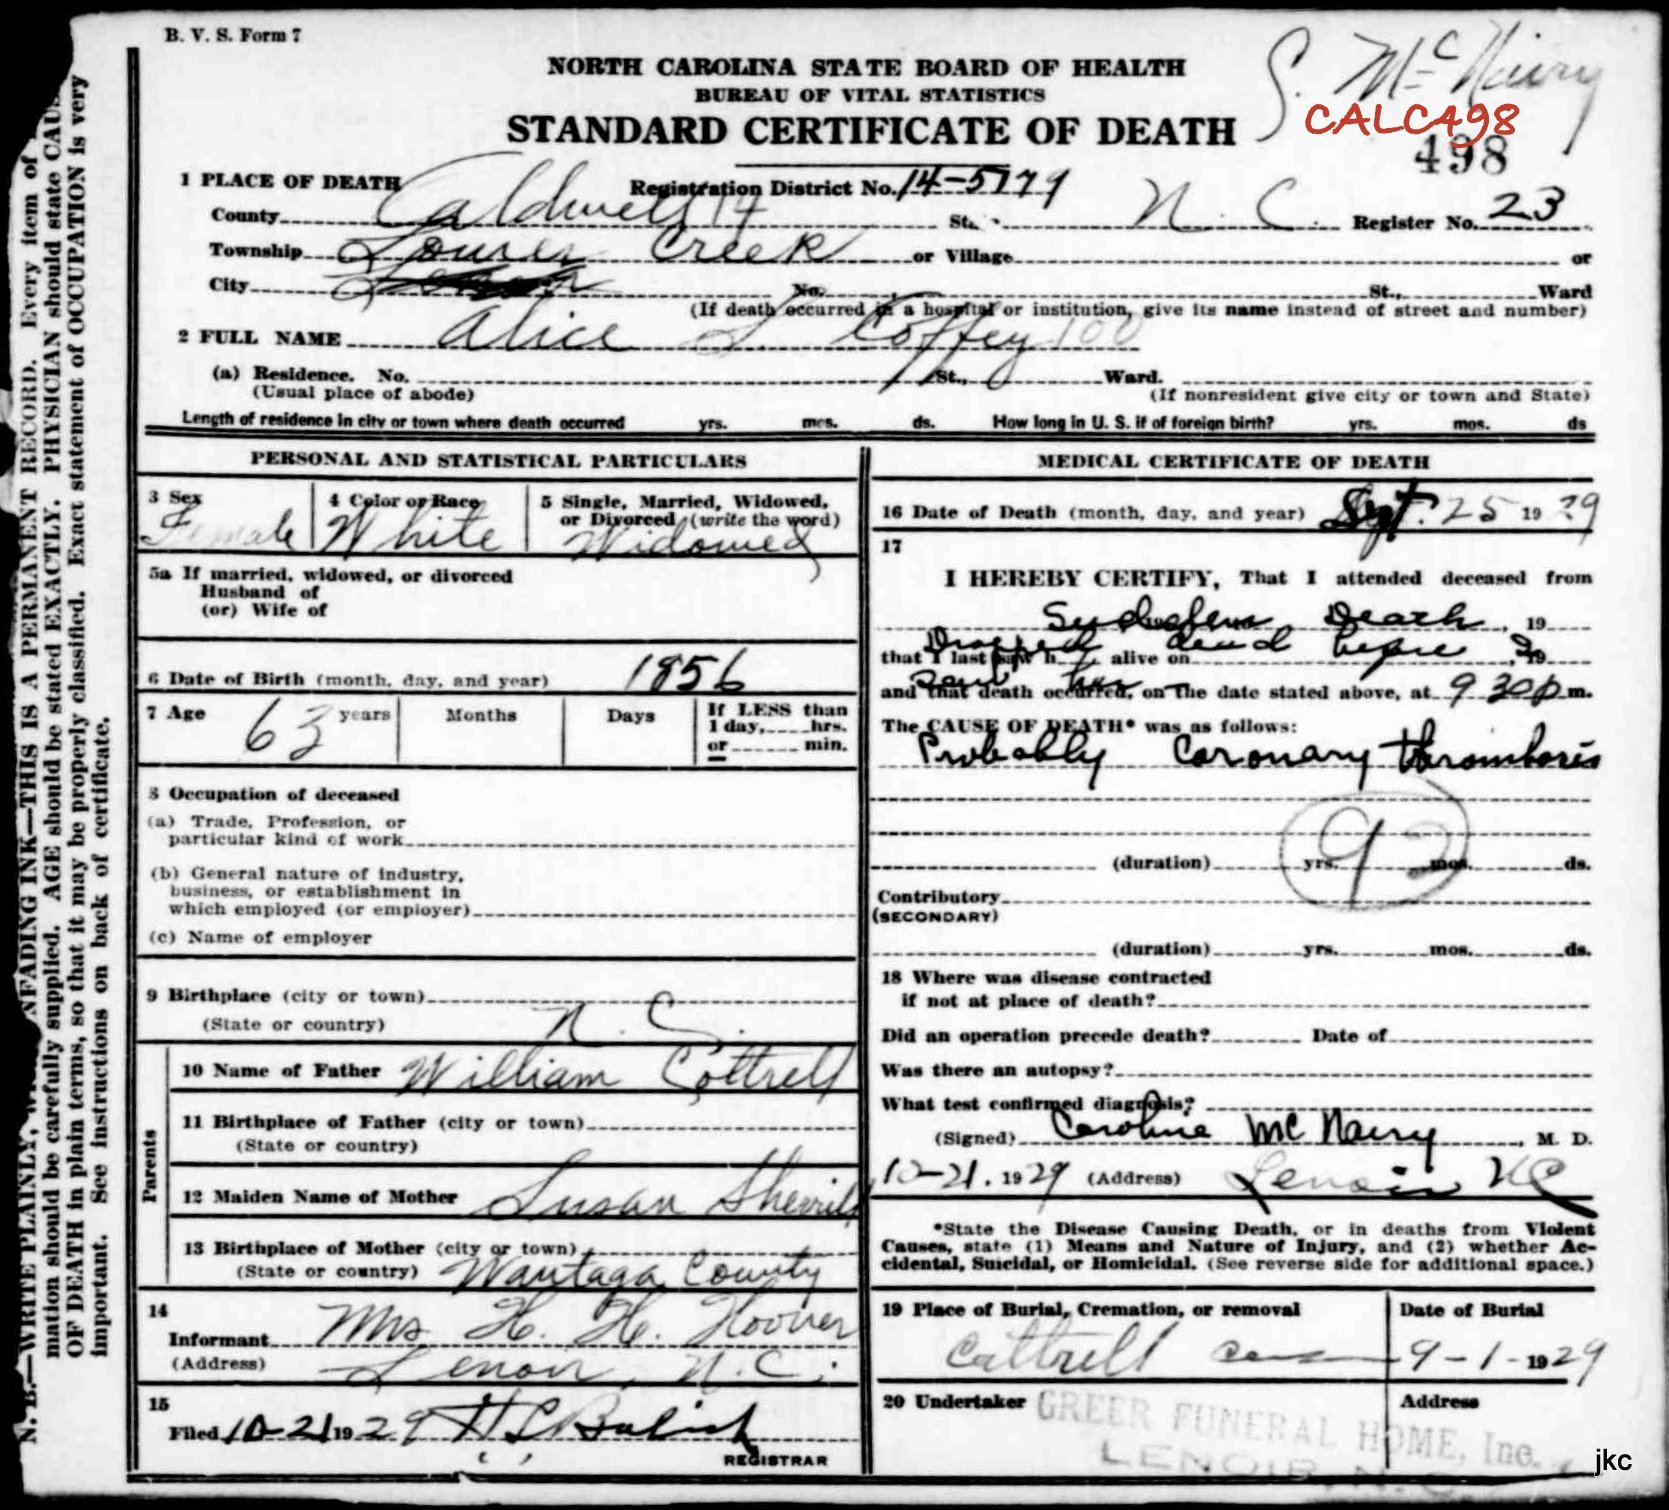 B. V. S. Form 7
NORTH CAROLINA STATE BOARD OF HEALTH
BUREAU OF VITAL STATISTICS
STANDARD CERTIFICATE OF DEATH
S. McNairy
CALC498
498
1 PLACE OF DEATH
Registration District No. 14-5179
County Caldwell 14 N. C. Register No. 23
Township Lower Creek or Village or
City Lenoir No. St., Ward
(If death occurred in a hospital or institution, give its name instead of street and number)
2 FULL NAME Alice L Coffey 100
(a) Residence. No. St., Ward.
(Usual place of abode) (If nonresident give city or town and State)
Length of residence in city or town where death occurred yrs. mos. ds. How long in U. S. if of foreign birth? yrs. mos. ds
PERSONAL AND STATISTICAL PARTICULARS
3 Sex 4 Color or Race 5 Single, Married, Widowed,
or Divorced (write the word)
Female White Widowed
5a If married, widowed, or divorced
Husband of
(or) Wife of
6 Date of Birth (month, day, and year) 1856
7 Age 63 years Months Days If LESS than
1 day, hrs.
or min.
8 Occupation of deceased
(a) Trade, Profession, or
particular kind of work
(b) General nature of industry,
business, or establishment in
which employed (or employer)
(c) Name of employer
9 Birthplace (city or town)
(State or country) N. C.
Parents
10 Name of Father William Cottrell
11 Birthplace of Father (city or town)
(State or country)
12 Maiden Name of Mother Susan Sherrill
13 Birthplace of Mother (city or town)
(State or country) Wautaga County
14
Informant Mrs H. H. Hoover
(Address) Lenoir, N. C.
15
Filed 10-21 1929 H C
REGISTRAR
MEDICAL CERTIFICATE OF DEATH
16 Date of Death (month, day, and year) Sept. 25 19 29
17
I HEREBY CERTIFY, That I attended deceased from
Death, 19
Dropped dead before I
that I last saw h alive on , 19
saw her
and that death occurred, on the date stated above, at 9 30 p m.
The CAUSE OF DEATH* was as follows:
Probably Coronary thrombosis
92
(duration) yrs. mos. ds.
Contributory
(SECONDARY)
(duration) yrs. mos. ds.
18 Where was disease contracted
if not at place of death?
Did an operation precede death? Date of
Was there an autopsy?
What test confirmed diagnosis?
(Signed) Caroline McNairy, M. D.
10-21. 1929 (Address) Lenoir NC
*State the Disease Causing Death, or in deaths from Violent
Causes, state (1) Means and Nature of Injury, and (2) whether Ac-
cidental, Suicidal, or Homicidal. (See reverse side for additional space.)
19 Place of Burial, Cremation, or removal Date of Burial
Cottrell 9-1-1929
20 Undertaker Address
GREER FUNERAL HOME, Inc.
LENOIR N. C.
jkc
mation should be carefully supplied. AGE should be stated EXACTLY. PHYSICIAN should state CAUS
OF DEATH in plain terms, so that it may be properly classified. Exact statement of OCCUPATION is very
important. See instructions on back of certificate.
N. B.—WRITE PLAINLY, NFADING INK—THIS IS A PERMANENT RECORD. Every item of